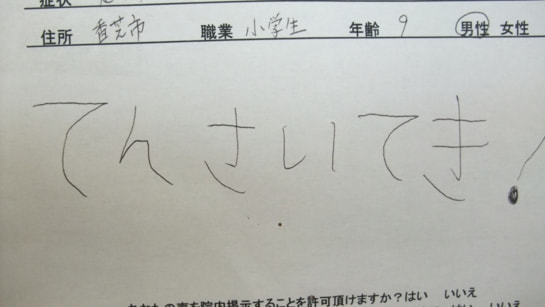 症状
住所 香芝市 職業 小学生 年齢 9 男性 女性
てんさいてき!
を院内掲示することを許可頂けますか?はい いいえ
はい いいえ